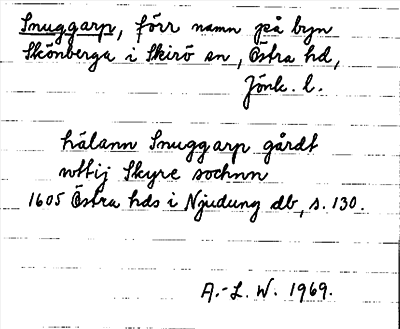 Snuggarp, förr namn på byn
Skönberga i Skirö sn, Östra hd,
Jönk. l.
hälann Snuggarp gårdt
wttij Skyre sochnn
1605 Östra hds i Njudung db, s. 130.
A.-L. W. 1969.